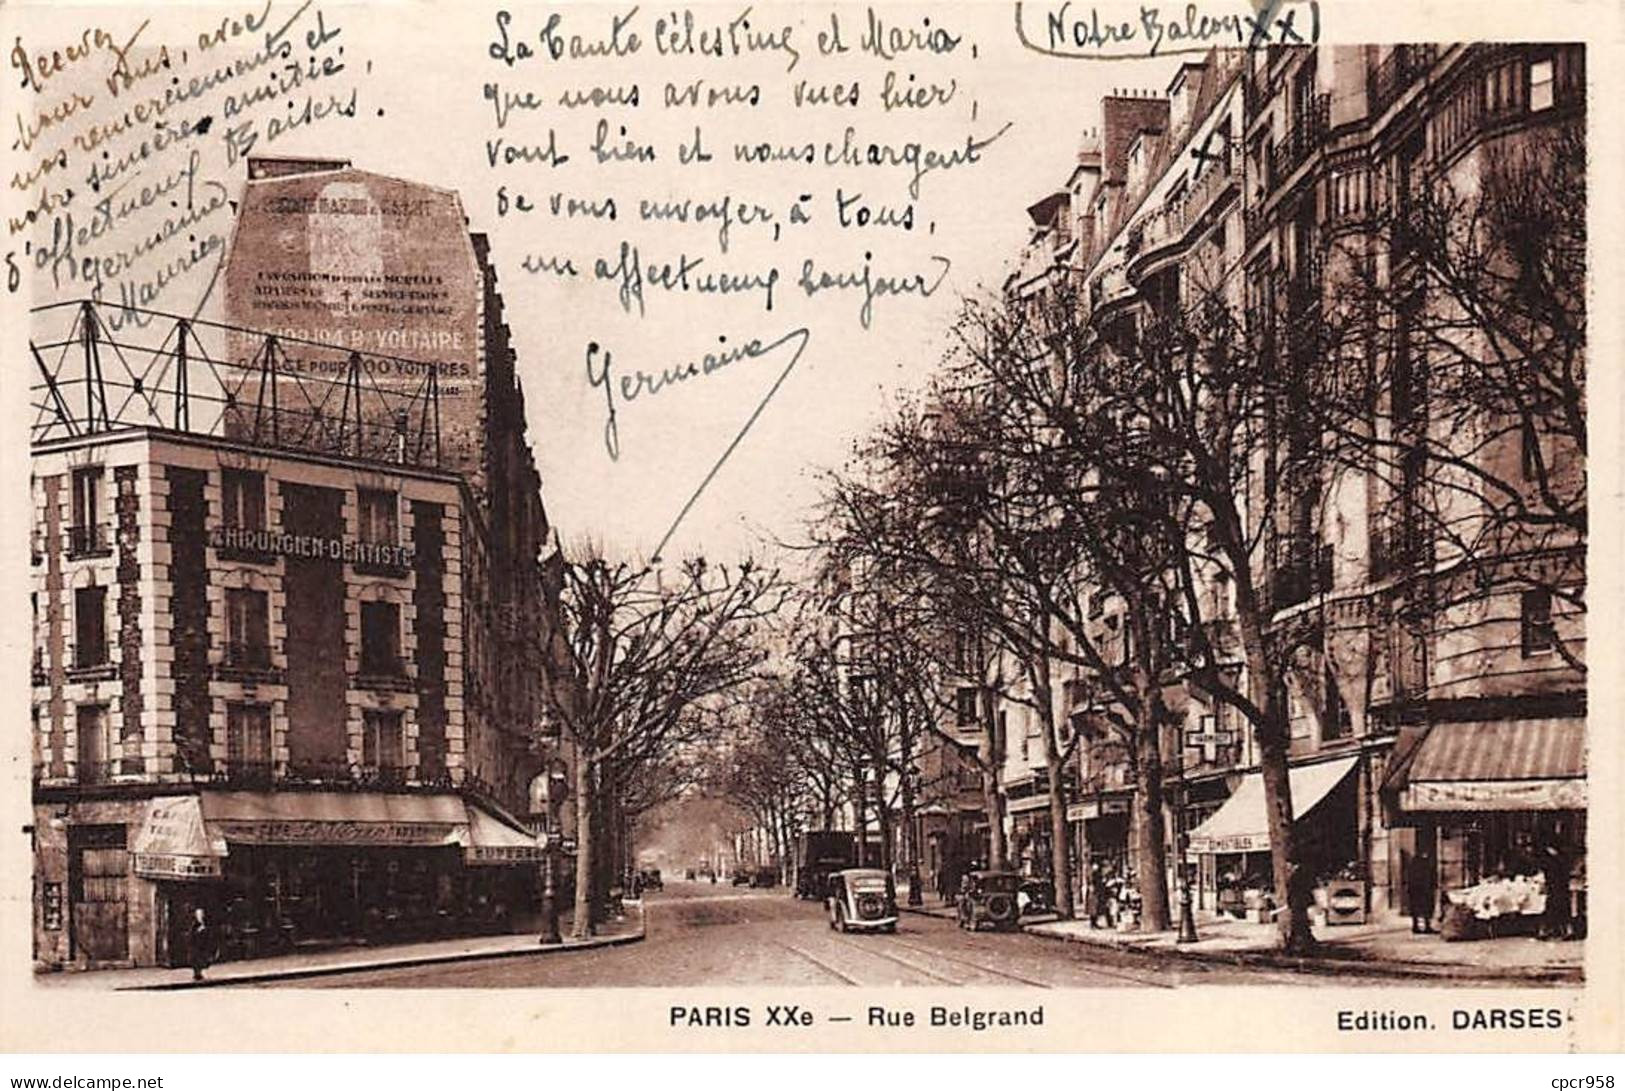 Recevez
pour vous, avec
nos remerciements et
notre sincère amitié,
d'affectueux Baisers.
Germaine
Maurice
La Tante Célestine et Maria,
que nous avons vues hier,
vont bien et nous chargent
de vous envoyer, à tous,
un affectueux bonjour
Germaine
Notre Balcon XX
X
EXPOSITION
SERVICE
VOLTAIRE
GARAGE POUR 400 VOITURES
CHIRURGIEN-DENTISTE
CAFÉ
TABAC
TÉLÉPHONE
CAFÉ
COMESTIBLES
PARIS XXe — Rue Belgrand
Edition. DARSES
cpcr958